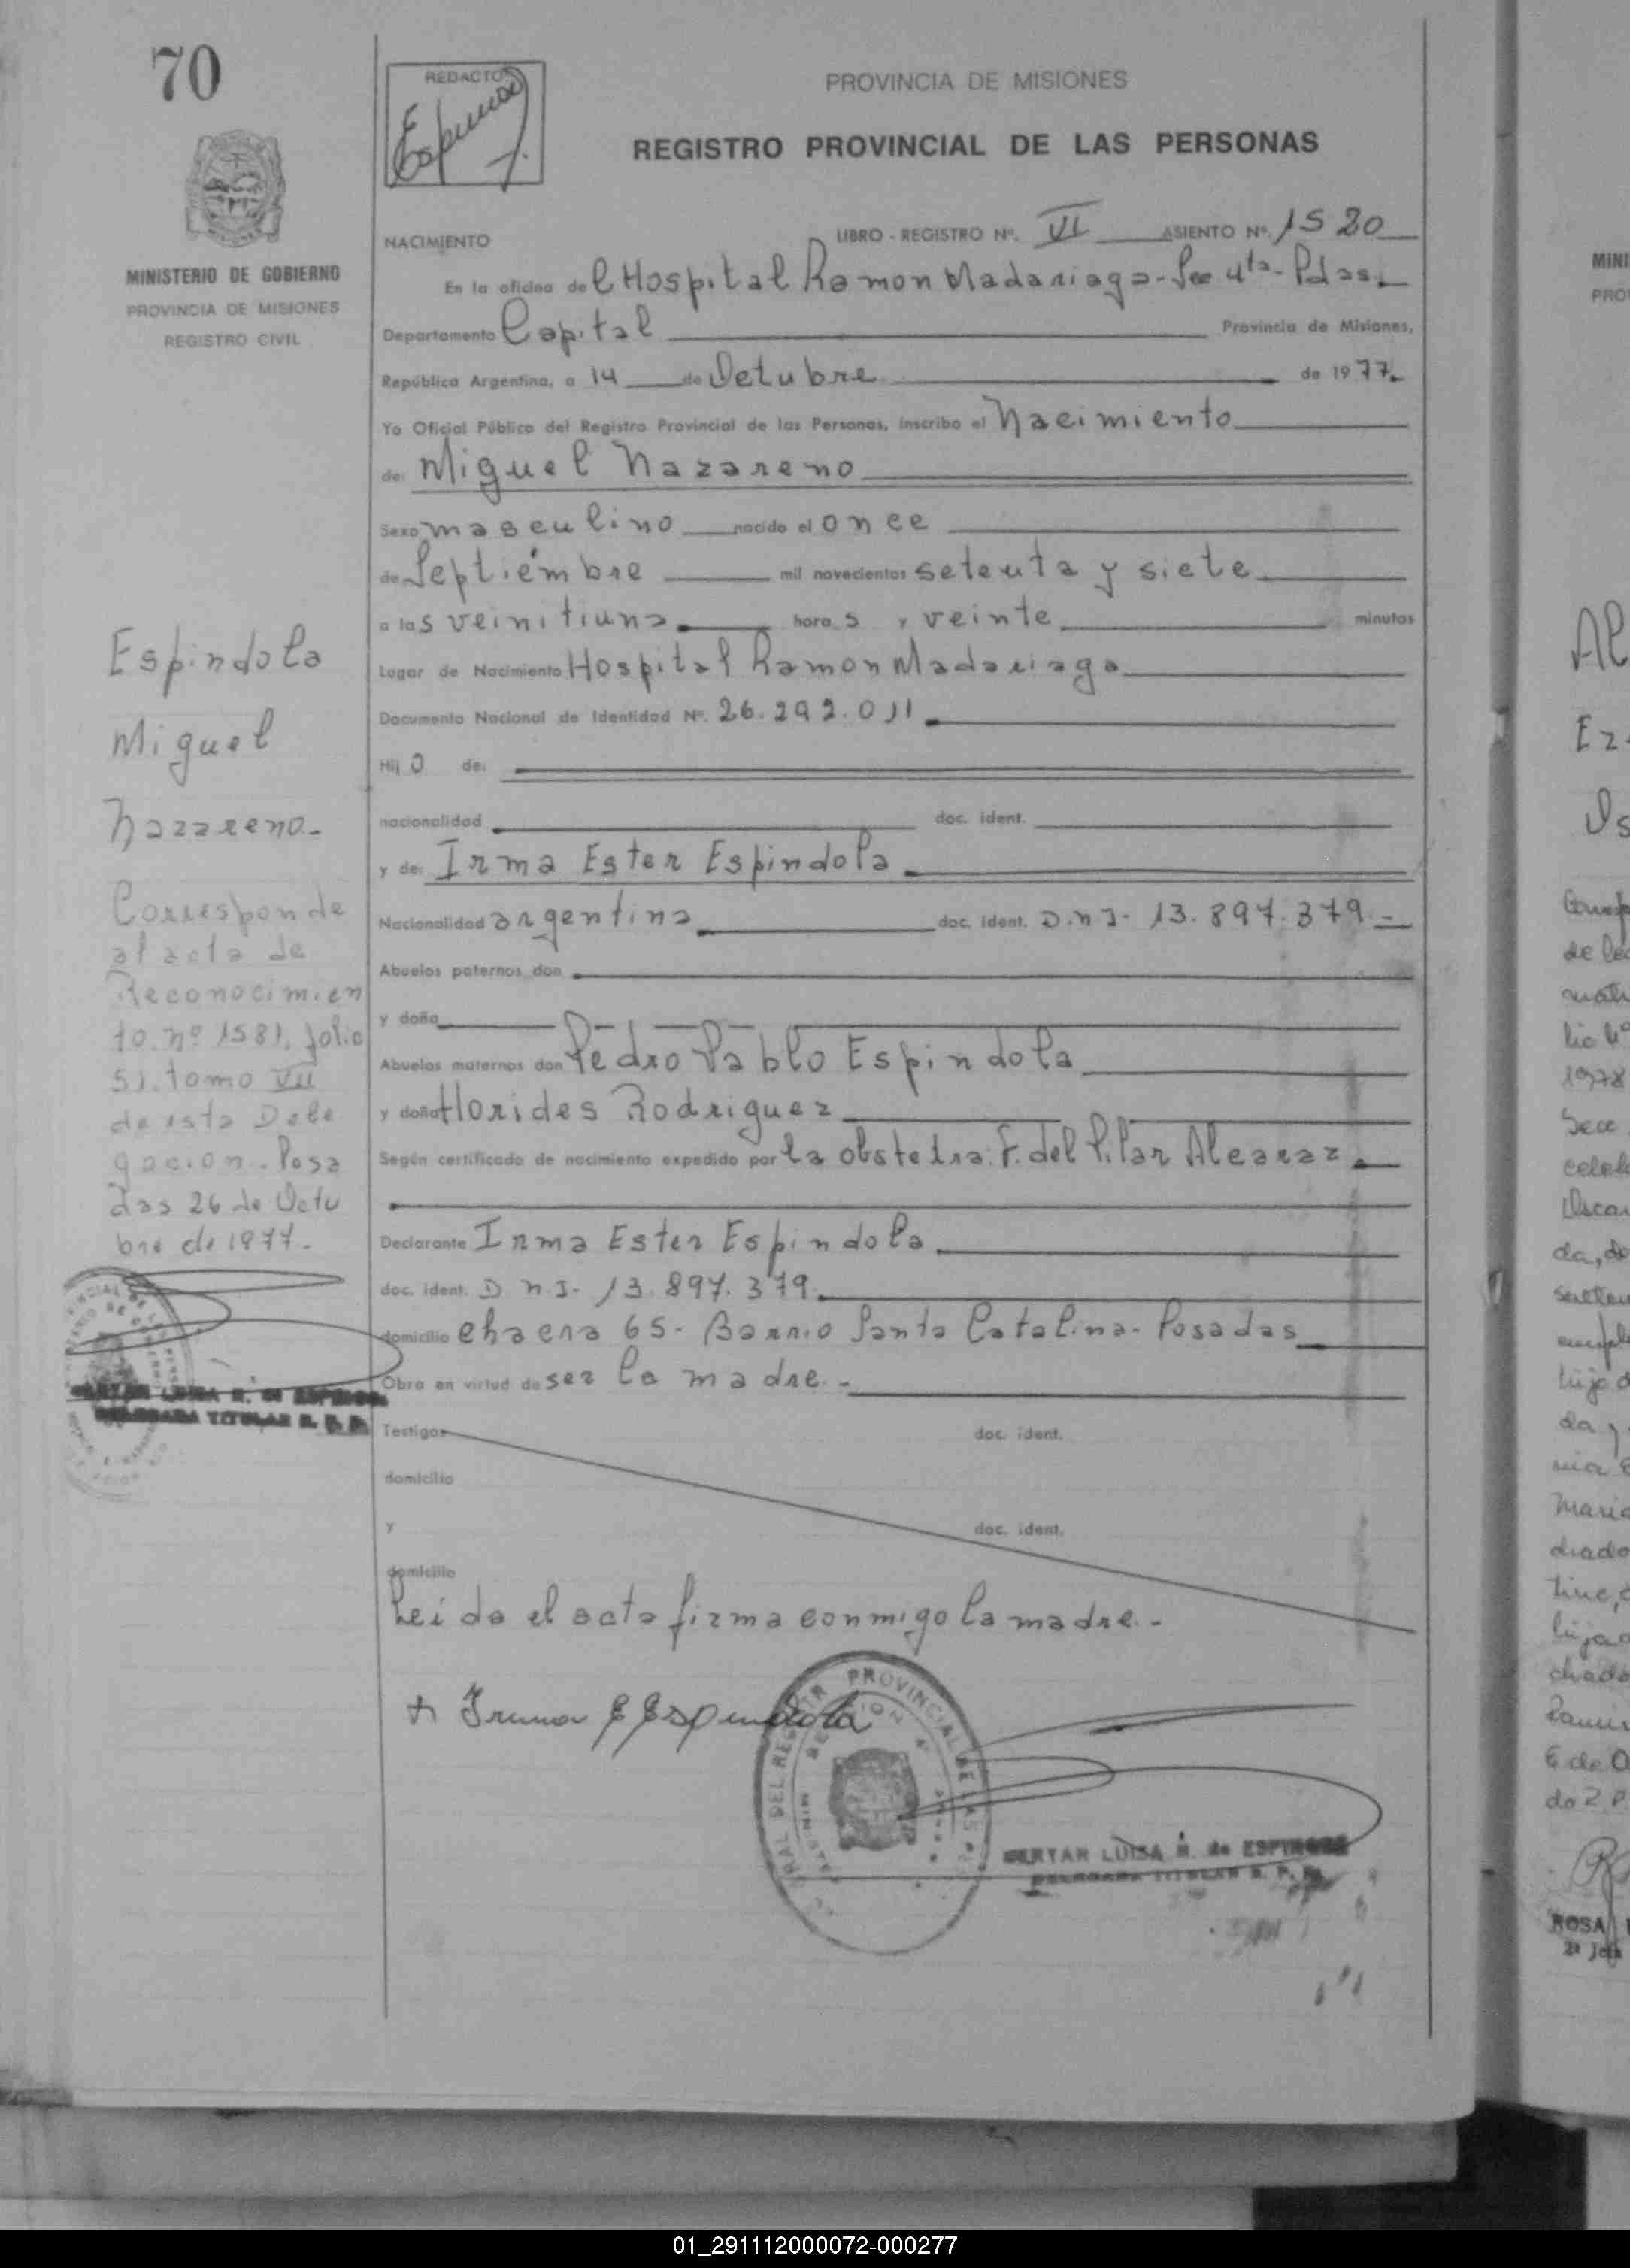 70
REDACTOR
PROVINCIA DE MISIONES
REGISTRO PROVINCIAL DE LAS PERSONAS
MINISTERIO DE GOBIERNO
PROVINCIA DE MISIONES
REGISTRO CIVIL
NACIMIENTO
LIBRO - REGISTRO Nº. VI ASIENTO Nº. 1520
En la oficina del Hospital Ramon Madariaga - Sec 4ta - Pdas.
Departamento Capital Provincia de Misiones,
República Argentina, a 14 de Octubre de 1977.
Yo Oficial Público del Registro Provincial de las Personas, inscribo el Nacimiento
de: Miguel Nazareno
Sexo masculino nacido el once
de Septiembre mil novecientos setenta y siete
a las veinitiuna horas y veinte minutos
Lugar de Nacimiento Hospital Ramon Madariaga
Documento Nacional de Identidad Nº. 26.292.011
Hijo de:
nacionalidad doc. ident.
y de: Irma Ester Espindola
Nacionalidad argentina doc. ident. D.N.I- 13.897.379.-
Abuelos paternos don
y doña
Abuelos maternos don Pedro Pablo Espindola
y doña Horides Rodriguez
Según certificado de nacimiento expedido por la obstetra: F. del Pilar Alcaraz
Declarante Irma Ester Espindola
doc. ident. D.N.I- 13.897.379.
domicilio chacra 65- Barrio Santa Catalina- Posadas
Obra en virtud de ser la madre.-
Testigos doc. ident.
domicilio
y doc. ident.
domicilio
Leida el acta firma conmigo la madre.-
Irma E Espindola
LUISA R. de
Espindola
Miguel
Nazareno.-
Corresponde
al acta de
Reconocimien
to. nº 1581, folio
51. tomo VII
de esta Dele
gacion. Posa
das 26 de Octu
bre de 1977.-
LUISA R. de
DELEGADA TITULAR R. P. P.
01_291112000072-000277